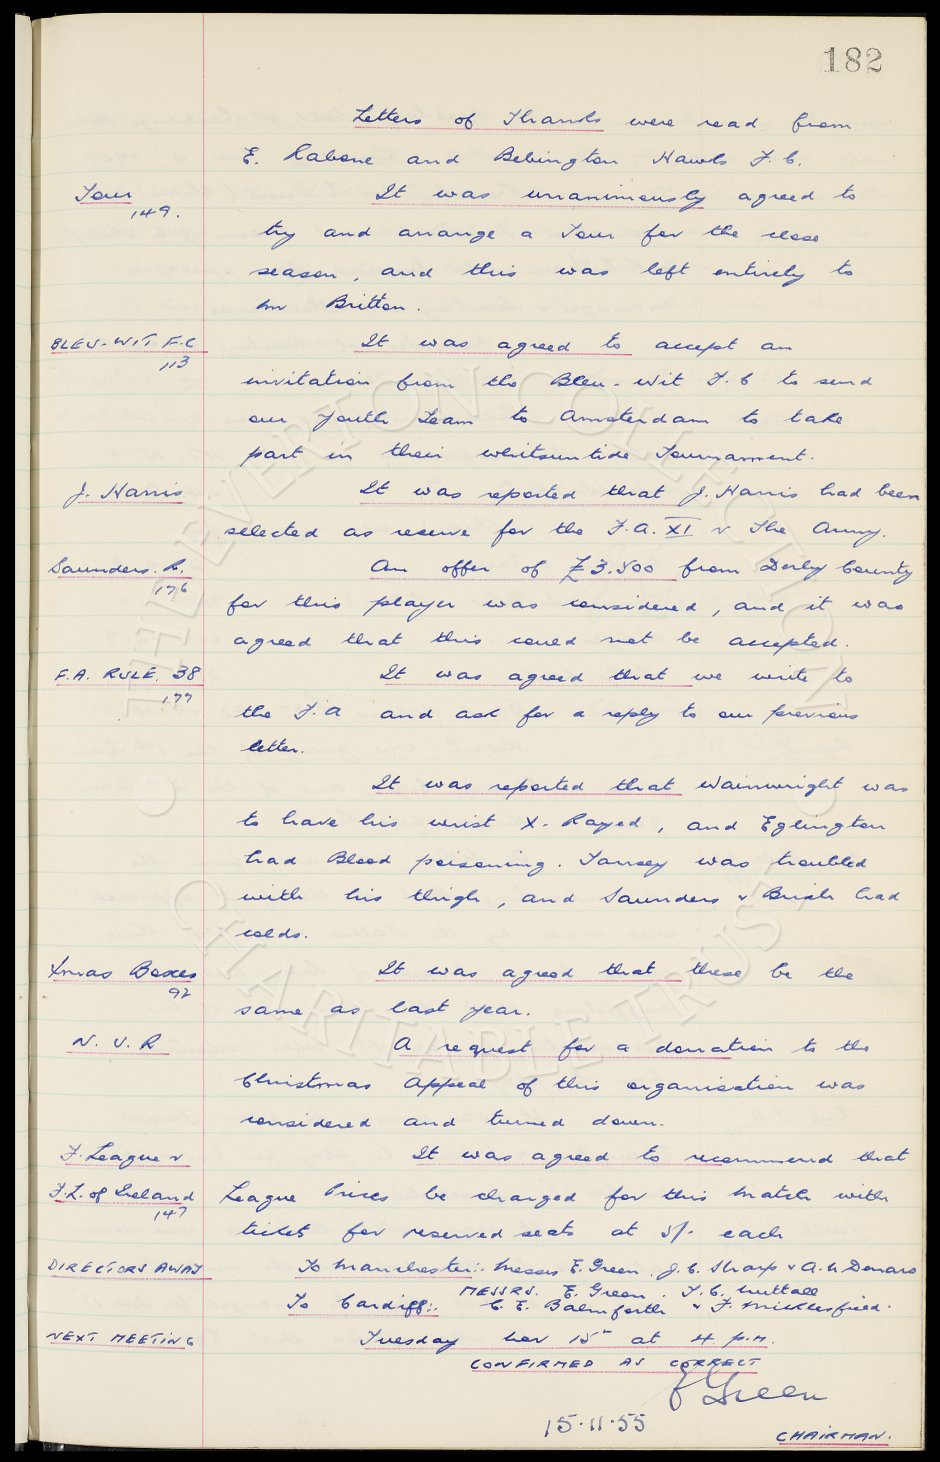 182
Letters of Thanks were read from
E. Rabone and Bebington Hawks F.C.
Tour It was unanimously agreed to
149.
try and arrange a Tour for the close
season, and this was left entirely to
Mr Britton.
BLEU-WIT F.C It was agreed to accept an
113
invitation from the Bleu-Wit F.C to send
our Youth Team to Amsterdam to take
part in their Whitsuntide Tournament.
J. Harris It was reported that J. Harris had been
selected as reserve for the F.A. XI v The Army.
Saunders. R. An offer of £3.500 from Derby County
176
for this player was considered, and it was
agreed that this could not be accepted.
F.A. RULE. 38 It was agreed that we write to
177
the F.A and ask for a reply to our previous
letter.
It was reported that Wainwright was
to have his wrist X-Rayed, and Eglington
had Blood poisoning. Tansey was troubled
with his thigh, and Saunders & Birch had
colds.
Xmas Boxes It was agreed that these be the
92
same as last year.
N. U. R A request for a donation to the
Christmas Appeal of this organisation was
considered and turned down.
F. League v It was agreed to recommend that
F.L. of Ireland League Prices be charged for this Match with
147
ticket for reserved seats at 5/- each
DIRECTORS AWAY To Manchester:. Messrs E. Green, J.C. Sharp & A. W Denaro
MESSRS. E. Green. T.C. Nuttall
To Cardiff:. C. E. Balmforth & F. Micklesfield.
NEXT MEETING Tuesday Nov 15th at 4 p.m.
CONFIRMED AS CORRECT
E Green
15.11.55
CHAIRMAN.
THE EVERTON COLLECTION
CHARITABLE TRUST